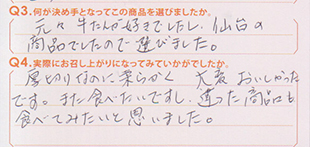 Q3.何が決め手となってこの商品を選びましたか。
元々牛たんが好きでしたし、仙台の
商品でしたので選びました。
Q4.実際にお召し上がりになってみていかがでしたか。
厚切りなのに柔らかく 大変おいしかった
です。また食べたいですし、違った商品も
食べてみたいと思いました。